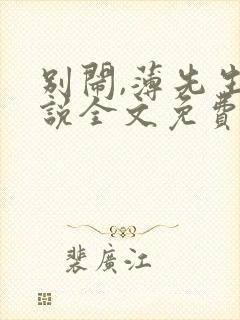 別鬧,薄先生
說全文免費
裴廣江